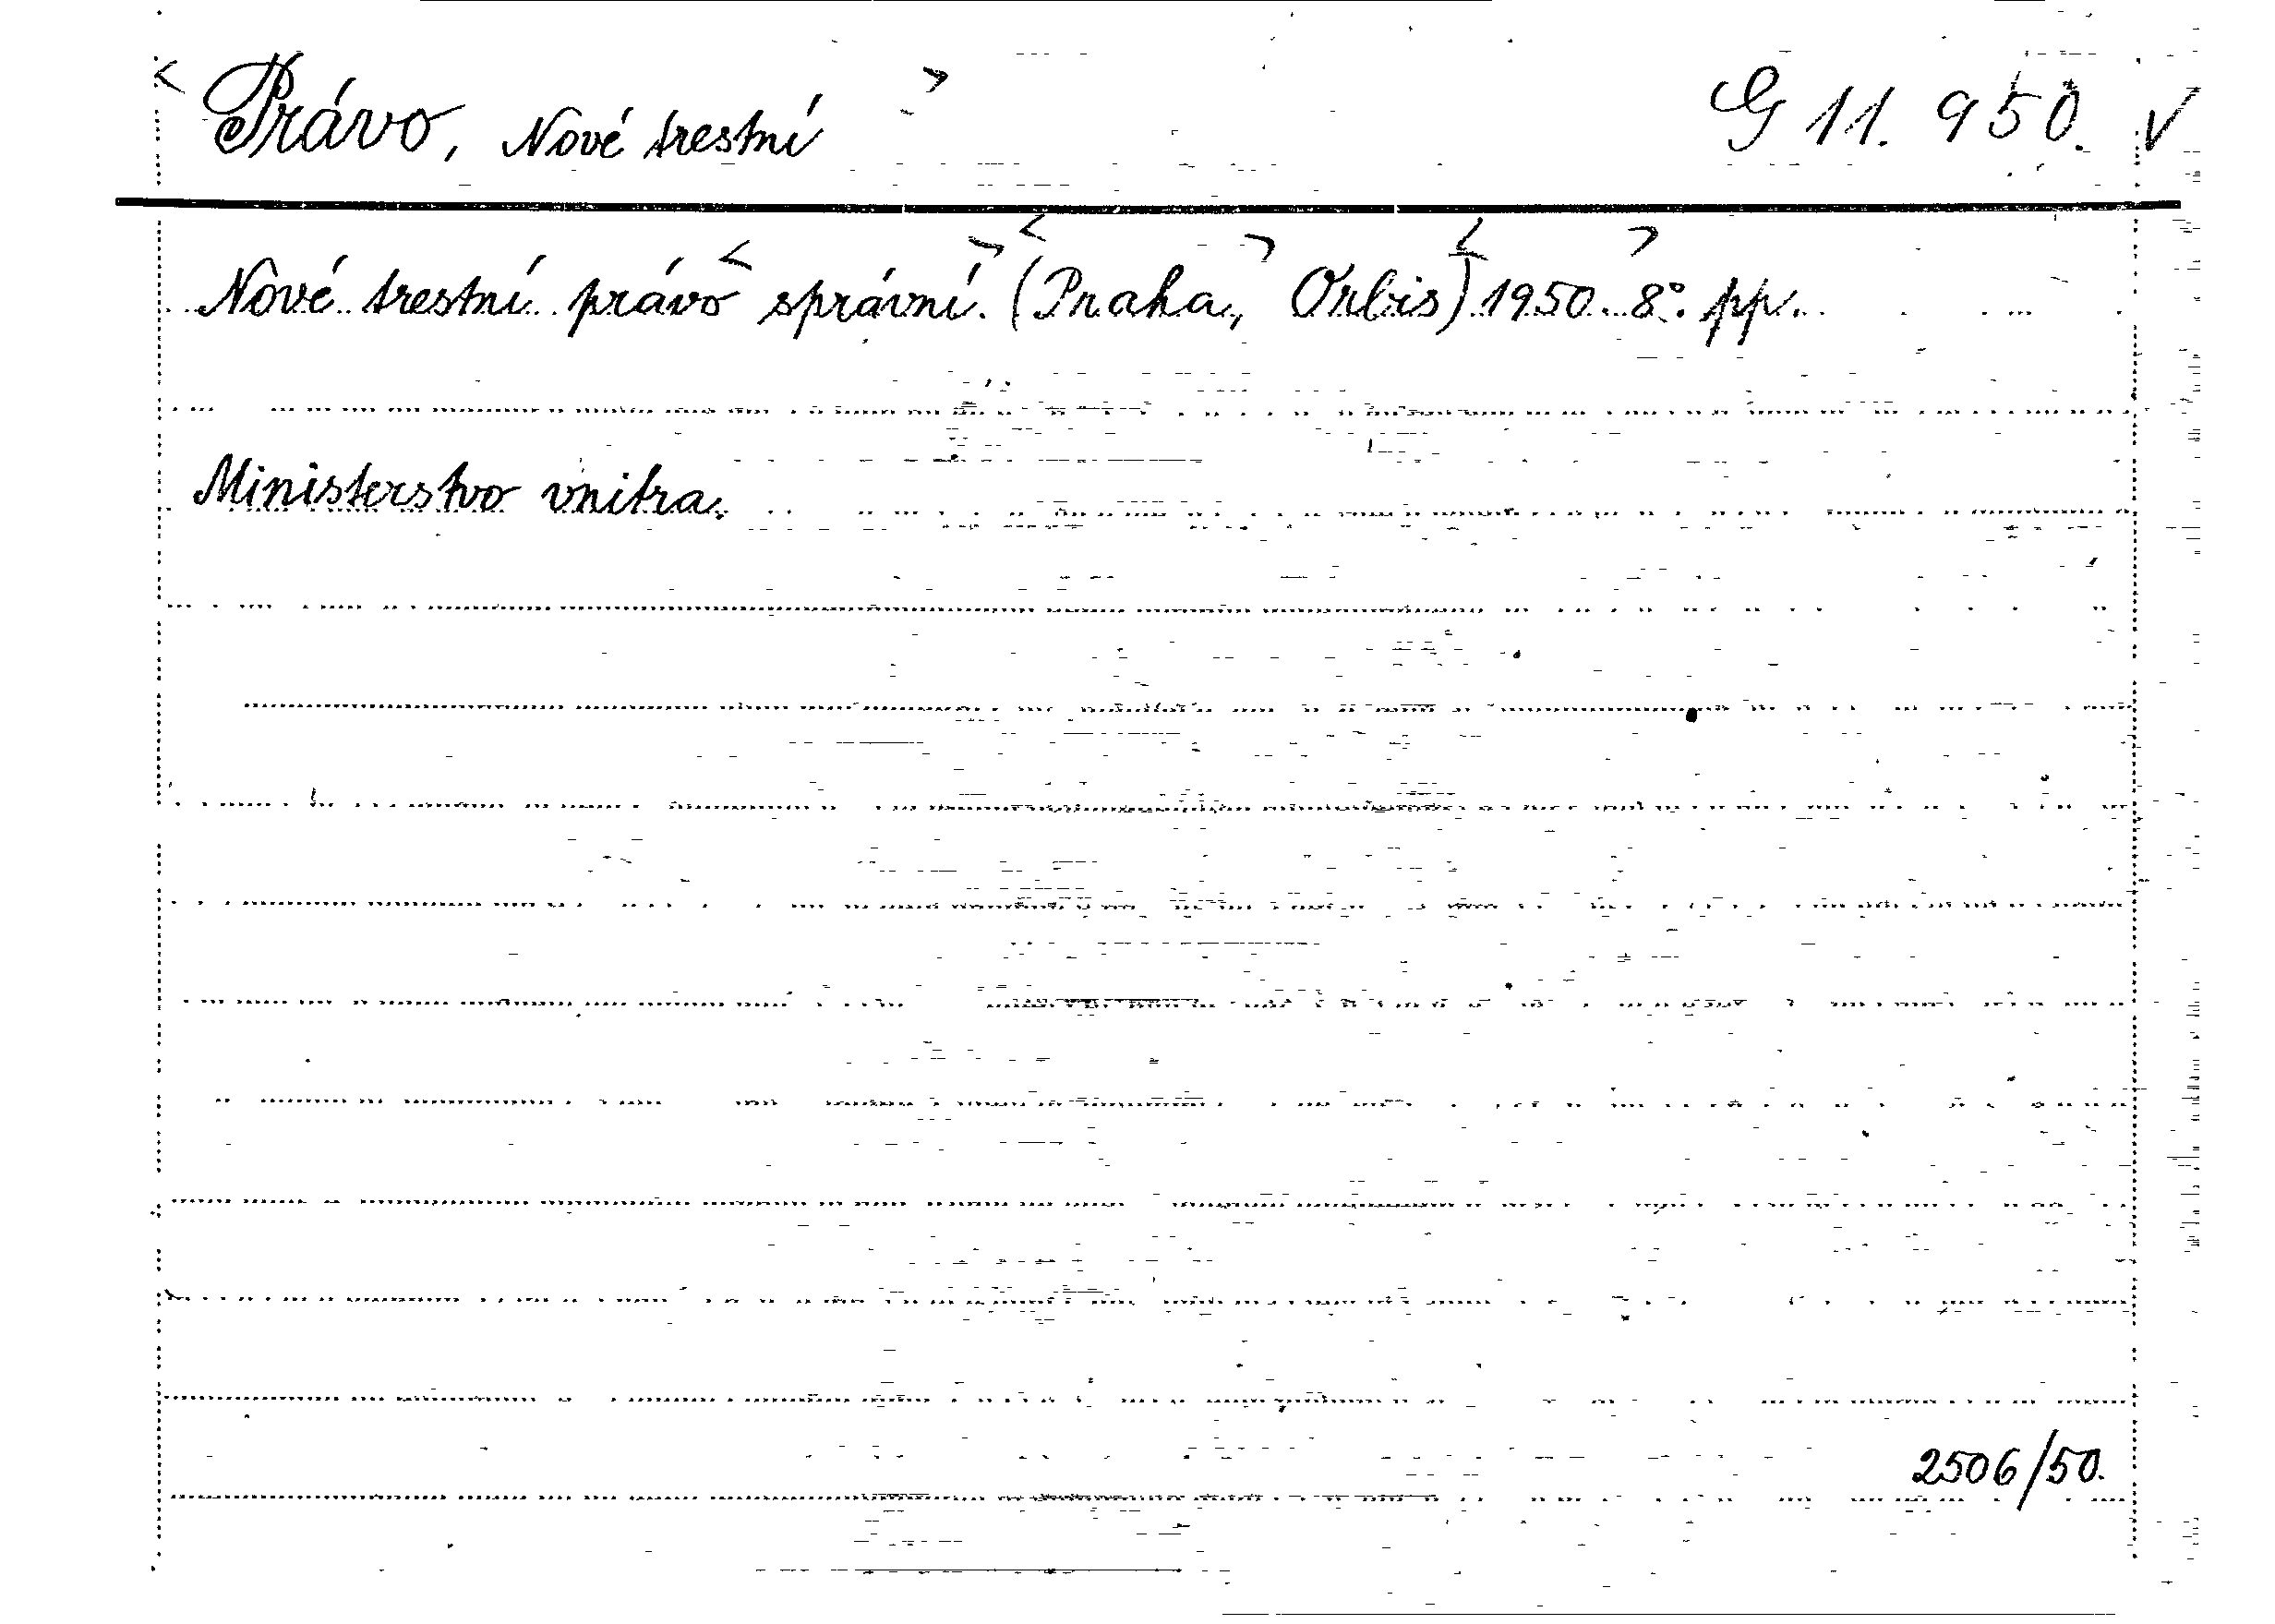 < Právo, Nové trestní > G 11.950. V
Nové trestní právo < správní. > (< Praha, > Orbis) < 1950. > 8°. pp.
Ministerstvo vnitra.
2506/50.